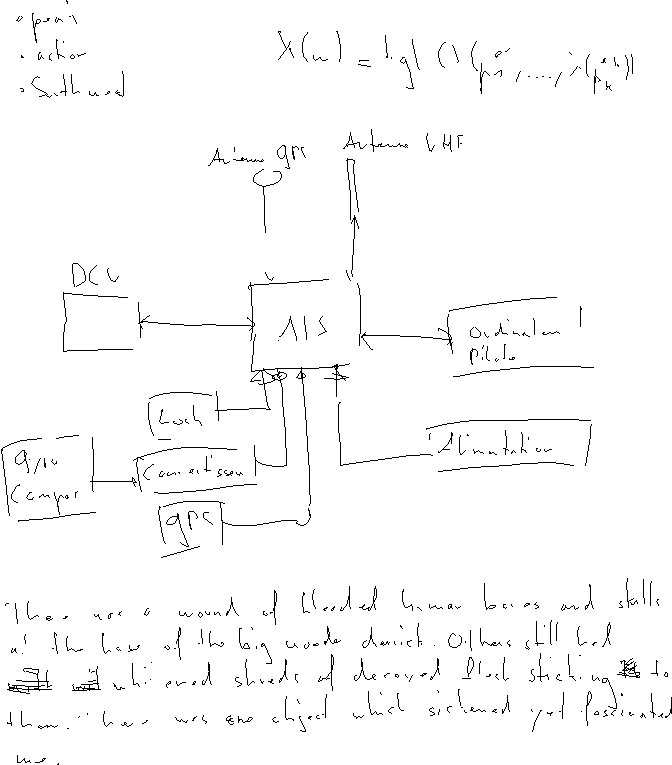 • action
X(u) =
Antenne GPS Antenne VHF
DCU
AIS
Ordinateur
Pilote
Loch
Alimentation
Gyro
Compas
Convertisseur
GPS
There was a mound of bleeded human bones and skulls
at the base of the big wooden derrick. Others still had
shreds of decayed flesh sticking to
them. There was one object which sickened yet fascinated
me.